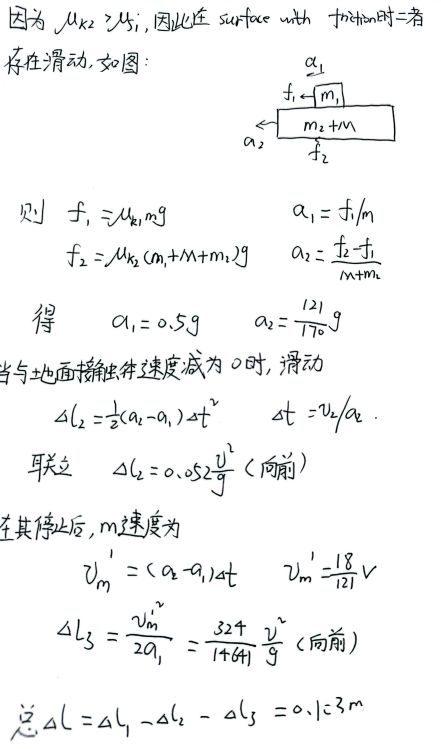 因为 μk2 > μsi, 因此在 surface with friction时二者
存在滑动, 如图:
a₁
f₁ ← m₁
m₂+M
a₂ f₂
则 f₁ = μk₁mg a₁ = f₁/m
f₂ = μk₂(m₁+M+m₂)g a₂ = (f₂-f₁)/(M+m₂)
得 a₁ = 0.5g a₂ = 121/170 g
当与地面接触体速度减为0时, 滑动
Δl₂ = ½(a₂-a₁)Δt² Δt = v₂/a₂.
联立 Δl₂ = 0.052 v²/g (向前)
在其停止后, m速度为
vm' = (a₂-a₁)Δt vm' = 18/121 v
Δl₃ = vm'²/2a₁ = 324/14641 v²/g (向前)
总Δl = Δl₁ - Δl₂ - Δl₃ = 0.133m